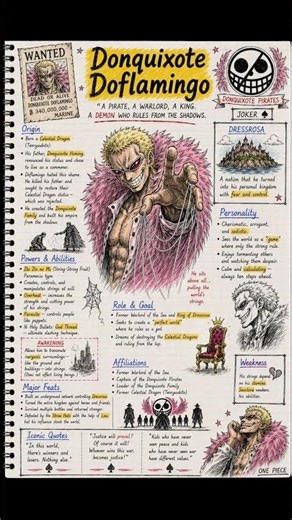 WANTED
DEAD OR ALIVE
DONQUIXOTE DOFLAMINGO
฿ 340,000,000 -
MARINE
Donquixote
Doflamingo
"A PIRATE, A WARLORD, A KING.
A DEMON WHO RULES FROM THE SHADOWS.
DONQUIXOTE PIRATES
JOKER ♠
Origin
• Born a Celestial Dragon
(Tenryuubito)
• His father, Donquixote Homing,
renounced his status and chose
to live as a commoner.
• Doflamingo hated this shame.
He killed his father and
sought to restore their
Celestial Dragon status –
which was rejected.
• He created the Donquixote
Family and built his empire
from the shadows.
DRESSROSA
A nation that he turned
into his personal kingdom
with fear and control.
Personality
• Charismatic, arrogant,
and sadistic.
• Sees the world as a "game"
where only the strong rule.
• Enjoys tormenting others
and watching them despair.
• Calm and calculating –
always ten steps ahead.
Powers & Abilities
• Ito Ito no Mi (String-String Fruit)
Paramecia type
• Creates, controls, and
manipulates strings at will
• Overheat – increases the
strength and cutting power
of his strings
• Parasite – controls people
like puppets
• 16 Holy Bullets: God Thread –
ultimate slashing technique
AWAKENING
Allows him to transmute
inorganic surroundings –
ground and
buildings – into strings.
(Does not affect living beings)
He sits
above all...
pulling the
world's
strings.
Role & Goal
• Former Warlord of the Sea and King of Dressrosa
• Seeks to create a "perfect world"
where he rules as a god.
• Dreams of destroying the Celestial Dragons
and ruling from the top.
Affiliations
• Former Warlord of the Sea
• Captain of the Donquixote Pirates
• Leader of the Donquixote Family
• Former Celestial Dragon (Tenryuubito)
Weakness
His strings
Major Feats
• Built an underground network controlling Dressrosa.
• Turned the entire kingdom against heroes and friends.
• Survived multiple battles and returned stronger.
• Defeated by the Straw Hats with the help of Law,
but his influence shook the world.
Iconic Quotes
"In this world,
there's winners and
losers. Nothing else."
"Justice will prevail?
Of course it will!
Whoever wins this war,
becomes justice!"
"Kids who have
never seen peace and kids
who have never seen war
have different values."
ONE PIECE